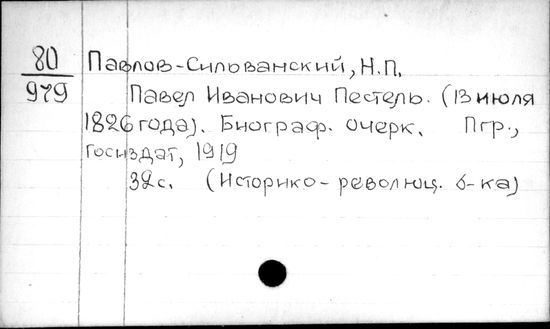 80
979
Павлов-Сильванский, Н.П.
Павел Иванович Пестель. (13 июля
1826 года). Биограф. очерк. Пгр.,
Госиздат, 1919
32 с. (Историко-революц. б-ка)